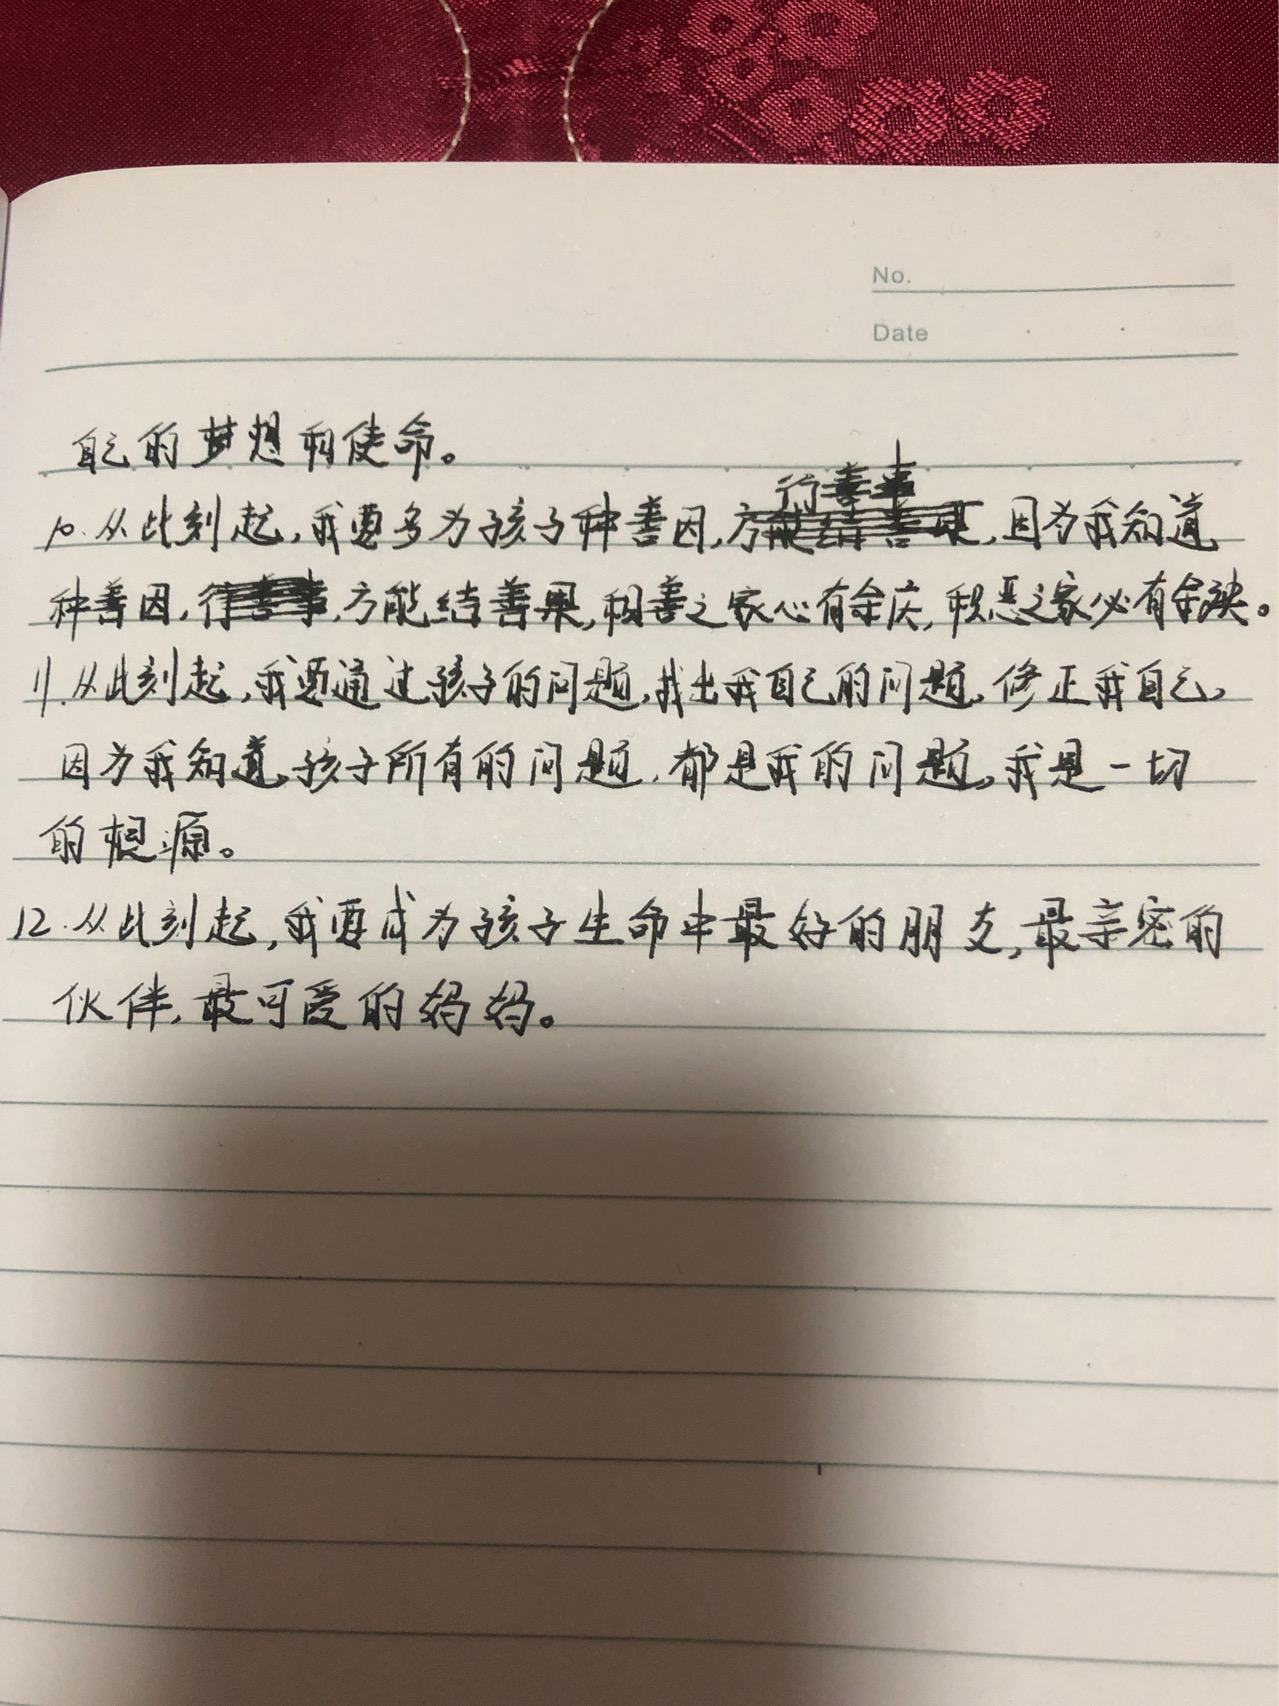 No.
Date
自己的梦想和使命。
行善事
10.从此刻起,我要多为孩子种善因,方能结善果,因为我知道
种善因,行善事,方能结善果,积善之家必有余庆,积恶之家必有余殃。
11.从此刻起,我要通过孩子的问题,找出我自己的问题,修正我自己,
因为我知道,孩子所有的问题,都是我的问题。我是一切
的根源。
12.从此刻起,我要成为孩子生命中最好的朋友,最亲密的
伙伴,最可爱的妈妈。